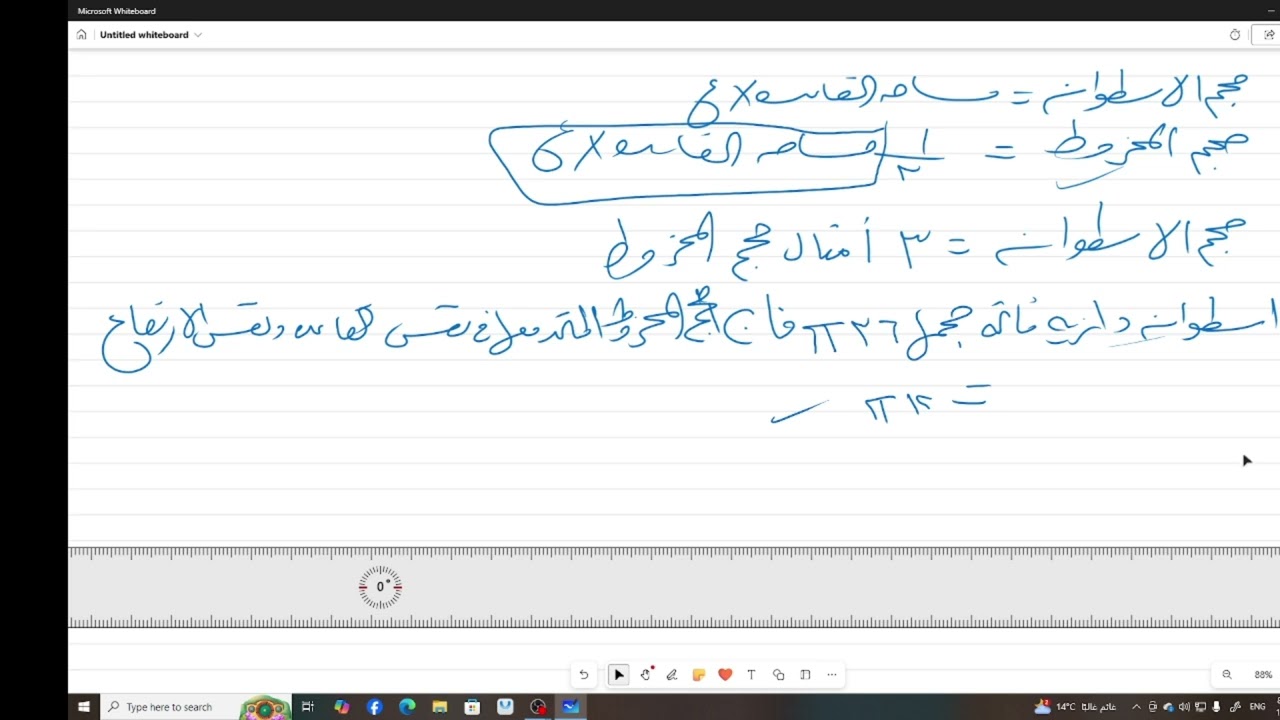 Microsoft Whiteboard
Untitled whiteboard
حجم الاسطوانه = مساحه القاعده × ع
حجم المخروط = ١/٣ مساحه القاعده × ع
حجم الاسطوانه = ٣ أمثال حجم المخروط
اسطوانه دائريه قائمه حجمها ٣٦π فان حجم المخروط المتحد معها في نفس القاعده ونفس الارتفاع
= ١٢π
0°
T
88%
Type here to search
14°C غائم غالبا
ENG